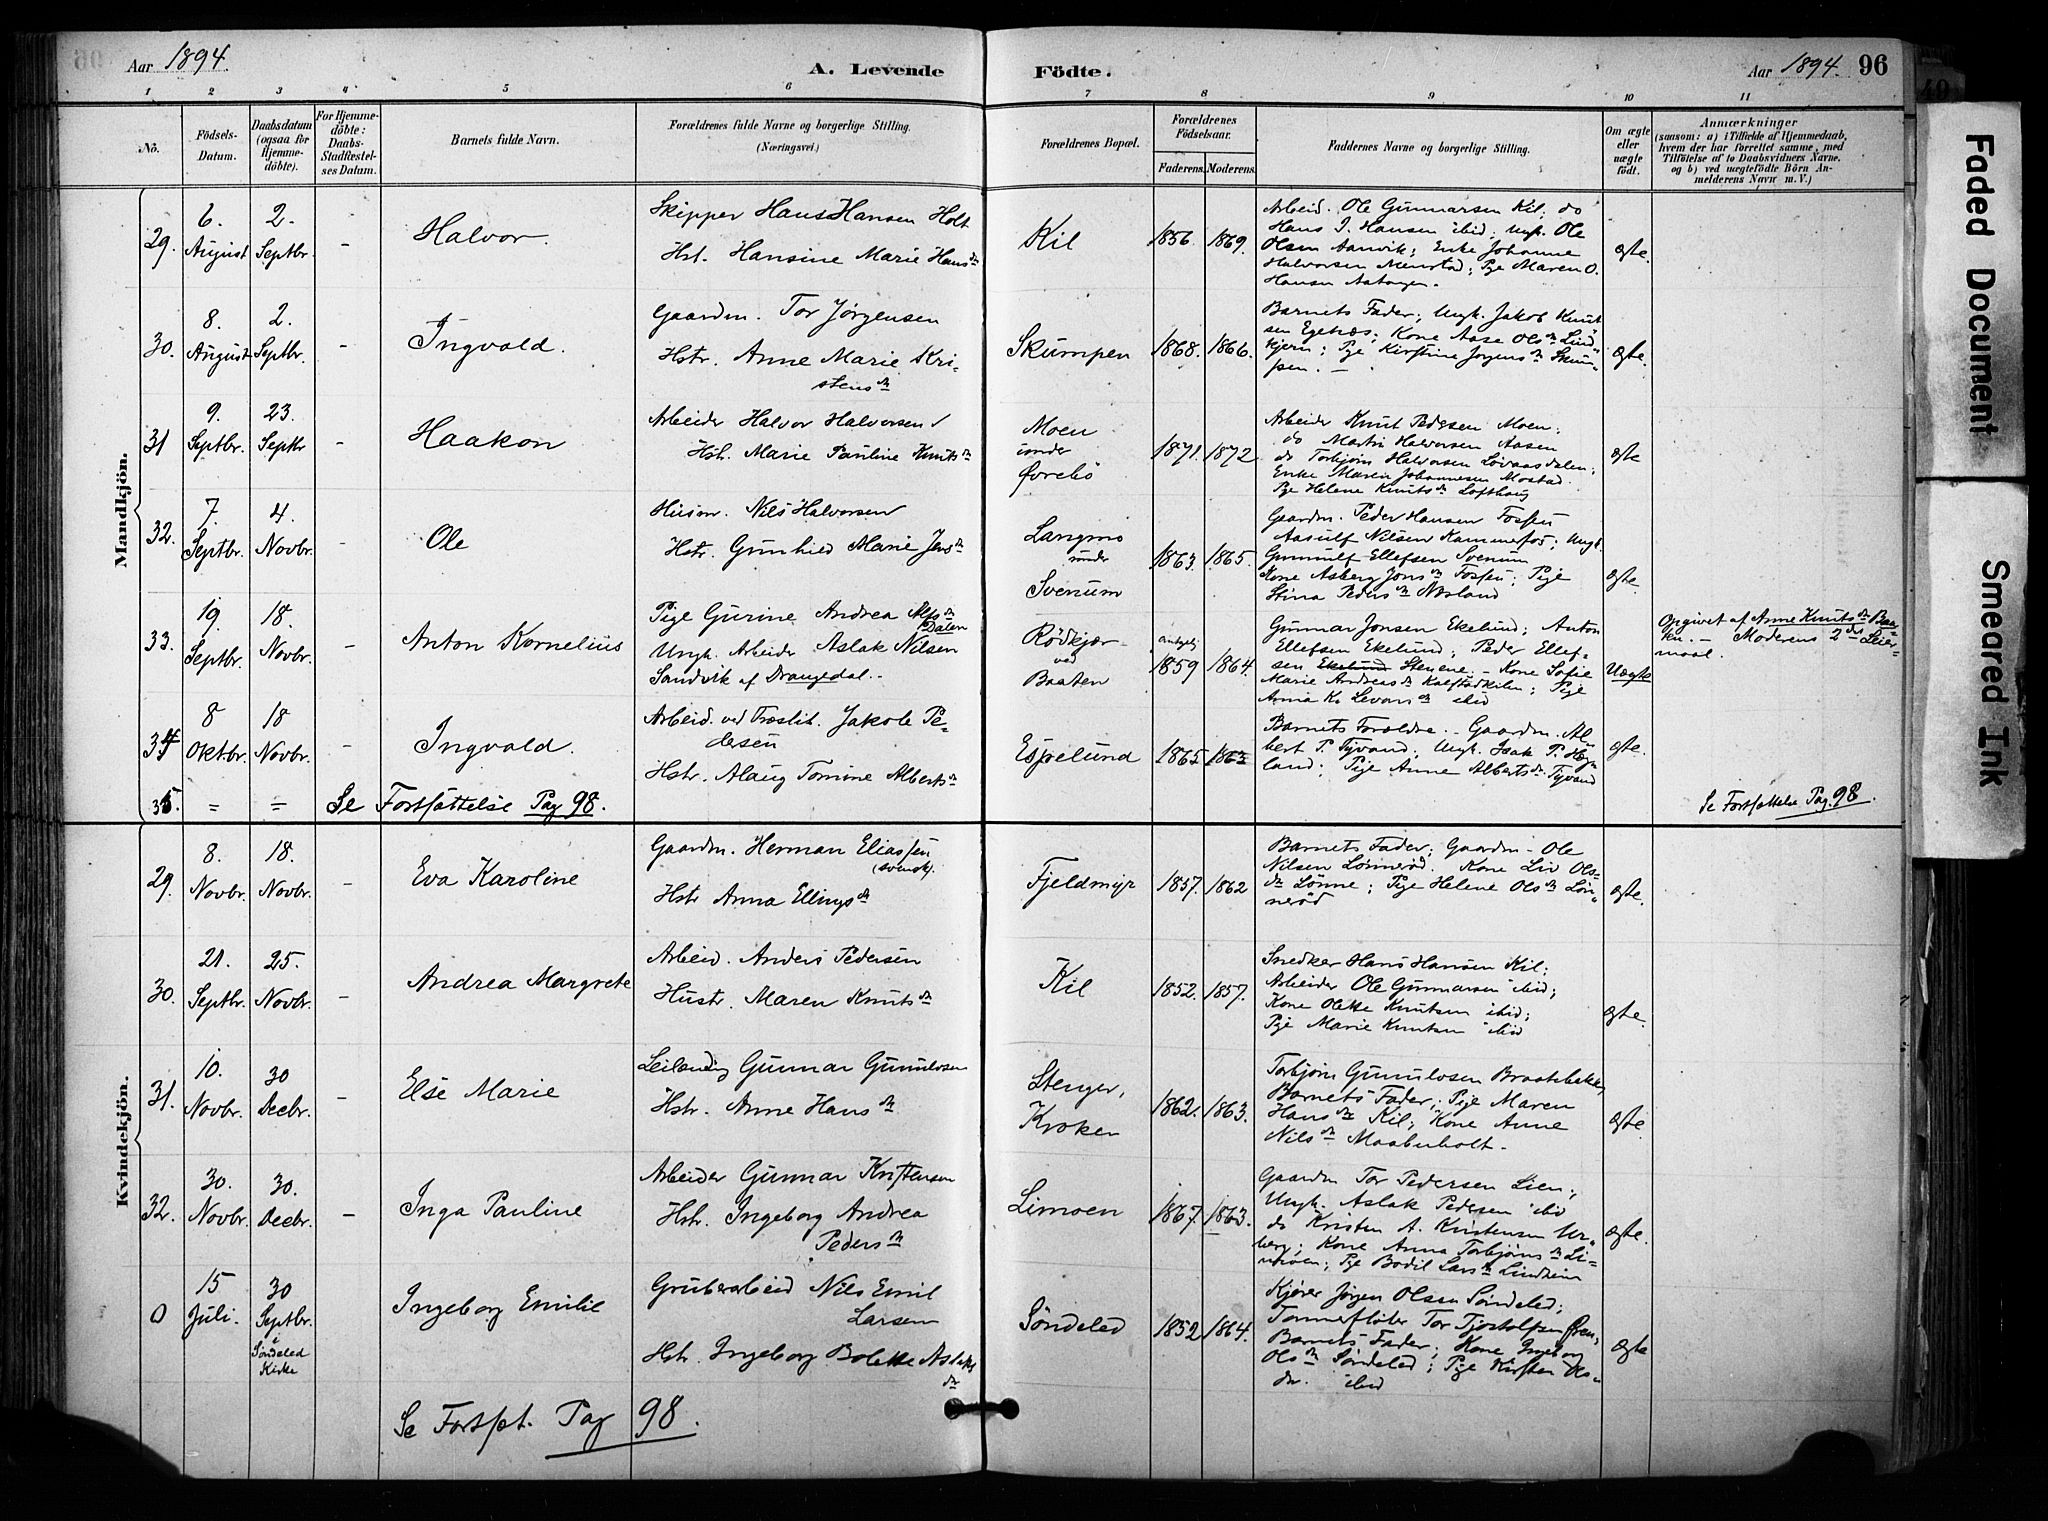 Aar 1894. A. Levende Födte. Aar 1894. 96
1 2 3 4 5 6 7 8 9 10 11
Nô. Födsels-Datum. Daabsdatum (ogsaa for Hjemmedöbte). For Hjemmedöbte: Daabs-Stadfæstelses Datum. Barnets fulde Navn. Forældrenes fulde Navne og borgerlige Stilling. (Næringsvei.) Forældrenes Bopæl. Forældrenes Födselsaar. Faderens. Moderens. Faddernes Navne og borgerlige Stilling. Om ægte eller uægte födt. Anmærkninger (saasom: a) i Tilfælde af Hjemmedaab, hvem der har forrettet samme, med Tilföielse af to Daabsvidners Navne. og b) ved uægtefödte Börn Anmelderens Navn m. V.)
Mandkjön.
29. 6. August 2. Septbr. - Halvor.
Skipper Hans Hansen Holt
Hst. Hansine Marie Hansdr
Kil 1856. 1869.
Arbeid. Ole Gunnarsen Kil; do
Hans J. Hansen ibid; Ungk. Ole
Olsen Aanvik; Enke Johanne
Halvorsen Menstad; Pige Maren O.
Hansen
ægte.
30. 8. August 2. Septbr. - Ingvald.
Gaardm. Tor Jørgensen
Hstr. Anne Marie Kri-
stensdr
Skumpen 1868. 1866.
Barnets Fader; Ungk. Jakob Knut
sen Egenæs; Kone Aase Olsdr Lind
kjern; Pige Kirstine Jørgensdr Skum-
pen. -
ægte.
31 9. Septbr. 23. Septbr - Haakon
Arbeider Halvor Halvorsen
Hstr. Marie Pauline Knutsdr
Moen under Øvrebö 1871. 1872
Arbeider Knut Pedersen Moen;
do Martin Halvorsen Aasen
do Torbjørn Halvorsen Løvaasdalen;
Enke Maren Johannesen Mostad.
Pige Helene Knutsdr Lofthaug
ægte
32. 7. Septbr. 4. Novbr. - Ole
Husm. Nils Halvorsen
Hstr. Gunhild Marie Jensdr
Langmo under Svenum 1863. 1865.
Gaardm. Peder Hansen Fossen
Aasulf Nilsen Kammerfos; Ungk.
Gunnulf Ellefsen Svenum
Kone Asberg Jonsdr Fossen; Pige
Stina Pedersdr
ægte.
33. 19. Septbr. 18. Novbr. - Anton Kornelius
Pige Gurine Andrea Alfsdr
Dalen
Ungk. Arbeider Aslak Nilsen
Sandvik af Drangedal.
Rödkjær ved Baaten 1859 1864.
Gunnar Jonsen Ekelund; Anton
Ellefsen Ekelund; Peder Ellef-
sen Ekelund Stenene. - Kone Sofie
Marie Andreasdr Kalstadkilen; Pige
Anna K. Levorsdr ibid
Uægte
Opgivet af Anne Knutsdr Baa-
ken. - Moderens 2det Leier-
maal.
34 8 Oktbr. 18 Novbr. - Ingvald.
Arbeid. ved Træslib. Jakob Pe-
dersen
Hstr. Alaug Tomine Albertsdr
Espelund 1865 1863
Barnets Forældre. - Gaardm. Al-
bert P. Tyvand; Ungk. Isak P. Heg-
land; Pige Anne Albertsdr Tyvand
ægte.
35. = = Se Fortsættelse Pag 98. Se Fortsættelse Pag. 98.
Kvindekjön.
29. 8. Novbr. 18. Novbr. - Eva Karoline
Gaardm. Herman Eliassen
(svensk).
Hstr Anna Ellingsdr
Fjeldmyr 1857. 1862
Barnets Fader; Gaardm - Ole
Nilsen Lønnerød. Kone Liv Ols-
dr Lönne; Pige Helene Olsdr Løn-
nerød
ægte.
30. 21. Septbr. 25. Novbr. - Andrea Margrete
Arbeid. Anders Pedersen
Hustr. Maren Knutsdr
Kil 1852. 1857.
Snedker Hans Hansen Kil;
Arbeider Ole Gunnarsen ibid;
Kone Olekke Knutsen ibid;
Pige Marie Knutsen ibid
ægte.
31. 10. Novbr. 30 Decbr. - Else Marie
Leilændig Gunnar Gunulvsen
Hstr. Anne Hansdr
Stenger, Kroken 1862. 1863.
Torbjørn Gunulvsen Braatebakke,
Barnets Fader; Pige Maren
Hansdr Kil; Kone Anne
Nilsdr Maabuholt.
ægte.
32. 30. Novbr. 30. Decbr. - Inga Pauline
Arbeider Gunnar Kristensen
Hstr. Ingeborg Andrea
Pedersdr
Limoen 1867. 1863.
Gaardm Tor Pedersen Lien;
Ungk. Aslak Pedersen ibid
do Kristen A. Kristensen Ur-
berg; Kone Anna Torbjørnsdr Li-
moen; Pige Bodil Larsdr Lindheim
ægte.
0 15 Juli. 30 Septbr. i Söndeled Kirke Ingeborg Emilie
Grubearbeid Nils Emil
Larsen
Hstr. Ingeborg Bolette Aslaks
dr
Söndeled 1852 1864.
Kjører Jørgen Olsen Søndeled;
Tømmerfløter Tor Tjostolfsen
Barnets Fader; Kone Ingeborg
Olsdr Søndeled; Pige Kirsten Ols-
dr. ibid
ægte
Se Fortsæt. Pag 98.
Faded Document
Smeared Ink